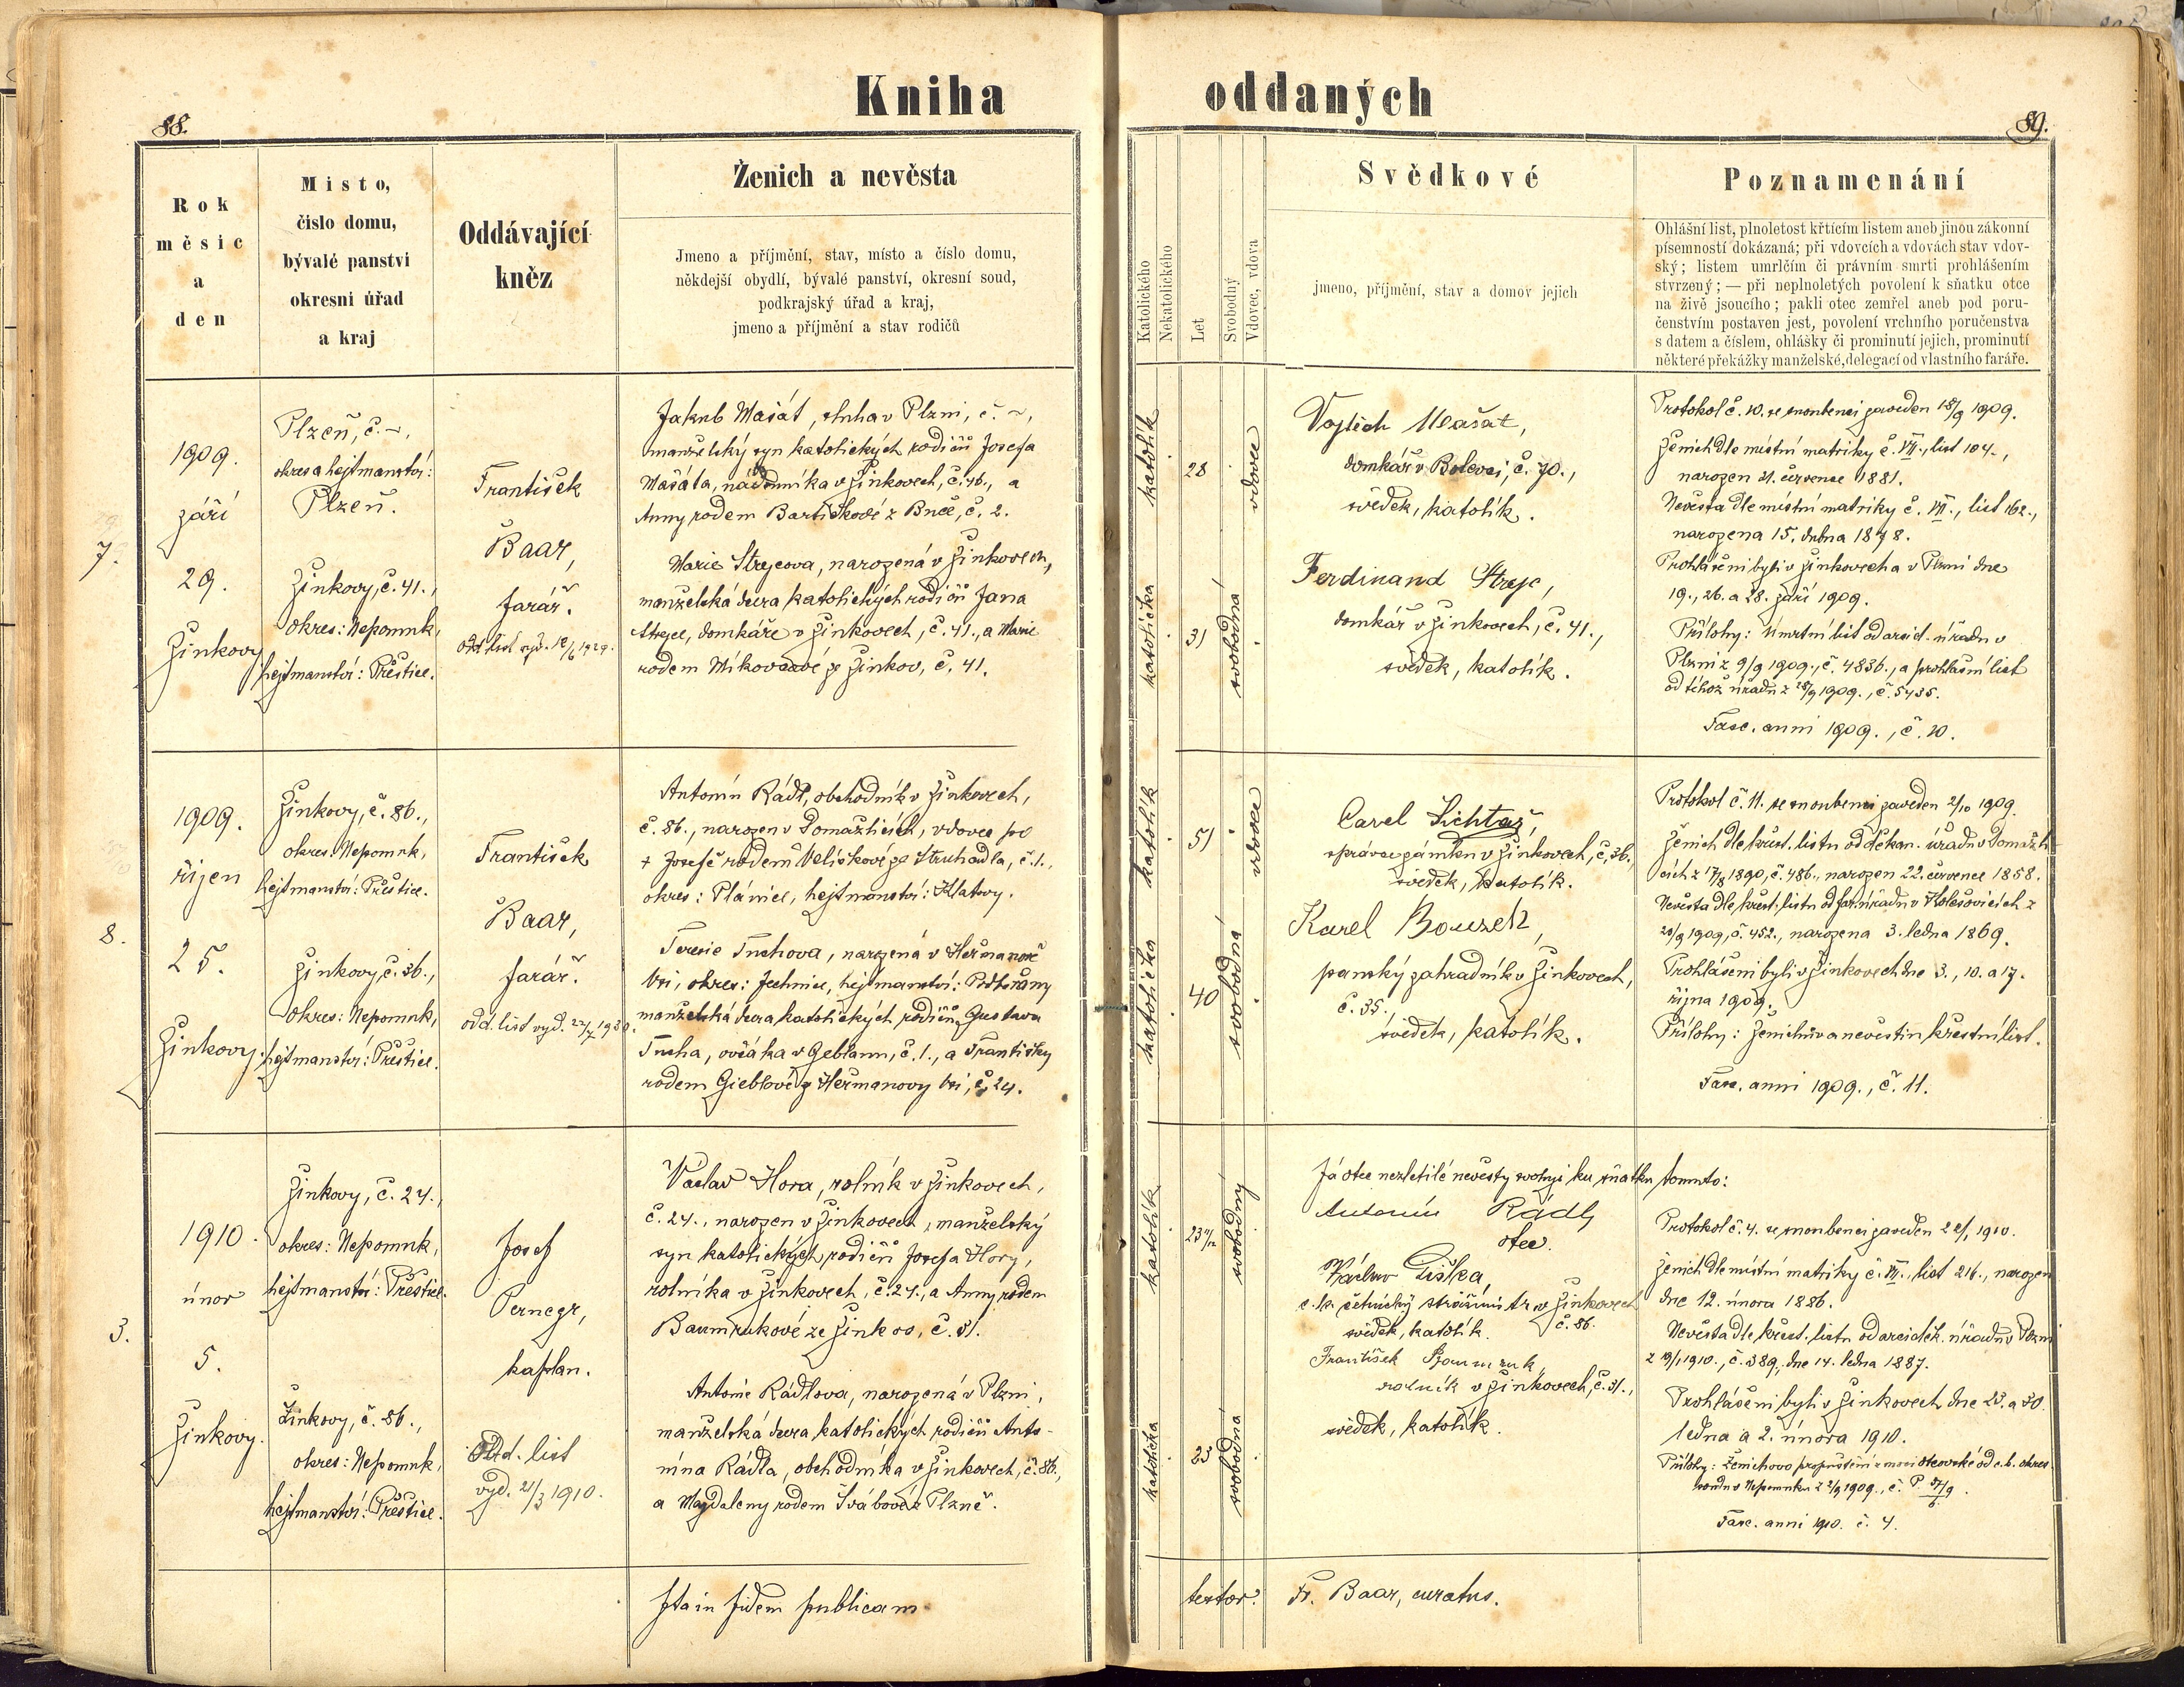 Kniha oddaných
88.
89.
Rok
měsic
a
den
Misto,
čislo domu,
bývalé panstvi
okresni úřad
a kraj
Oddávající
kněz
Ženich a nevěsta
Jmeno a příjmění, stav, místo a číslo domu,
někdejší obydlí, bývalé panství, okresní soud,
podkrajský úřad a kraj,
jmeno a příjmění a stav rodičů
Katolického
Nekatolického
Let
Svobodný
Vdovec, vdova
Svědkové
jmeno, příjmění, stav a domov jejich
Poznamenání
Ohlášní list, plnoletost křtícím listem aneb jinou zákonní
písemností dokázaná; při vdovcích a vdovách stav vdov-
ský; listem umrlčím či právním smrti prohlášením
stvrzený; — při neplnoletých povolení k sňatku otce
na živě jsoucího; pakli otec zemřel aneb pod poru-
čenstvím postaven jest, povolení vrchního poručenstva
s datem a číslem, ohlášky či prominutí jejich, prominutí
některé překážky manželské, delegací od vlastního faráře.
7.
1909.
září
29.
Žinkovy
Plzeň, č. ~,
okres a hejtmanství:
Plzeň.
Žinkovy, č. 41.,
okres: Nepomuk,
hejtmanství: Přeštice.
František
Baar,
farář.
odd. list vyd. 12/6 1929.
Jakub Mašát, sluha v Plzni, č. ~,
manželský syn katolických rodičů Josefa
Mašáta, nádenníka v Žinkovech, č. 46., a
Anny rodem Bartíčkové z Buče, č. 2.
Marie Strejcova, narozená v Žinkovech,
manželská dcera katolických rodičů Jana
Strejce, domkáře v Žinkovech, č. 41., a Marie
rodem Míkovcové ze Žinkov, č. 41.
katolík
28
vdovec
katolička
31
svobodná
Vojtěch Mašát,
domkář v Bolevci, č. 70.,
svědek, katolík.
Ferdinand Strejc,
domkář v Žinkovech, č. 41.,
svědek, katolík.
Protokol č. 10. se snoubenci zaveden 18/9 1909.
Ženich dle místní matriky č. VII., list 104.,
narozen 21. července 1881.
Nevěsta dle místní matriky č. VII., list 162.,
narozena 15. dubna 1878.
Prohlášeni byli v Žinkovech a v Plzni dne
19., 26. a 28. září 1909.
Přílohy: Úmrtní list od arcid. úřadu v
Plzni z 9/9 1909., č. 4836., a prohlašní list
od téhož úřadu z 28/9 1909., č. 5435.
Fasc. anni 1909., č. 10.
8.
1909.
říjen
25.
Žinkovy.
Žinkovy, č. 86.,
okres: Nepomuk,
hejtmanství: Přeštice.
Žinkovy, č. 36.,
okres: Nepomuk,
hejtmanství: Přeštice.
František
Baar,
farář.
odd. list vyd. 22/7 1930.
Antonín Rádl, obchodník v Žinkovech,
č. 86., narozen v Domažlicích, vdovec po
+ Josefě rodem Velíškové ze Struhadla, č. 1.,
okres: Plánice, hejtmanství: Klatovy.
Teresie Tuchova, narozená v Heřmanově
Vsi, okres: Jechnice, hejtmanství: Podbořany
manželská dcera katolických rodičů Gustava
Tucha, ovčáka v Geblanu, č. 1., a Františky
rodem Gieblové z Heřmanovy Vsi, č. 24.
katolík
51
vdovec
katolička
40
svobodná
Carel Lichtag,
správce zámku v Žinkovech, č. 36.,
svědek, katolík.
Karel Bouzek,
panský zahradník v Žinkovech,
č. 35.,
svědek, katolík.
Protokol č. 11. se snoubenci zaveden 2/10 1909.
Ženich dle křest. listu od děkan. úřadu v Domažli-
cích z 17/8 1890, č. 486., narozen 22. července 1858.
Nevěsta dle křest. listu od far. úřadu v Kolešovicích z
20/9 1909, č. 452., narozena 3. ledna 1869.
Prohlášeni byli v Žinkovech dne 3., 10. a 17.
října 1909.
Přílohy: Ženichův a nevěstin křestní list.
Fasc. anni 1909., č. 11.
3.
1910.
únor
5.
Žinkovy.
Žinkovy, č. 24.,
okres: Nepomuk,
hejtmanství: Přeštice.
Žinkovy, č. 86.,
okres: Nepomuk,
hejtmanství: Přeštice.
Josef
Pernegr,
kaplan.
Odd. list
vyd. 21/3 1910.
Václav Hora, rolník v Žinkovech,
č. 24., narozen v Žinkovech, manželský
syn katolických rodičů Josefa Hory,
rolníka v Žinkovech, č. 24., a Anny rodem
Baumrukové ze Žinkov, č. 31.
Antonie Rádlova, narozená v Plzni,
manželská dcera katolických rodičů Anto-
nína Rádla, obchodníka v Žinkovech, č. 86.,
a Magdaleny rodem Švábové z Plzně.
katolík
23 11/12
svobodný
katolička
23
svobodná
Já otec nezletilé nevěsty svoluji ku sňatku tomuto:
Antonín Rádl,
otec.
Václav Liška,
c. k. četnický strážmistr v Žinkovech
č. 86.
svědek, katolík.
František Baumruk,
rolník v Žinkovech, č. 31.,
svědek, katolík.
Protokol č. 4. se snoubenci zaveden 22/1 1910.
Ženich dle místní matriky č. VII., list 216., narozen
dne 12. února 1886.
Nevěsta dle křest. listu od arciděk. úřadu v Plzni
z 19/1 1910., č. 389., dne 14. ledna 1887.
Prohlášeni byli v Žinkovech dne 23. a 30.
ledna a 2. února 1910.
Přílohy: Ženichovo propuštění z moci otcovské od c. k. okres.
soudu v Nepomuku z 2/9 1909., č. P.
Fasc. anni 1910. č. 4.
Ita in fidem publicam
testor. Fr. Baar, curatus.